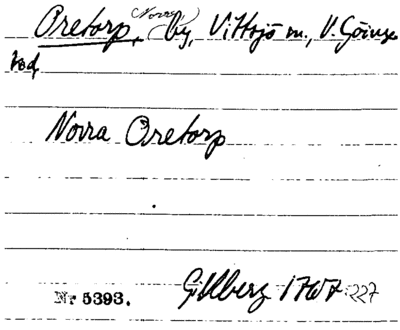 Oretorp, (Norra) by, Vittsjö sn., V. Göinge
hd,
Norra Oretorp
Nr 5393. Gillberg 1767:227